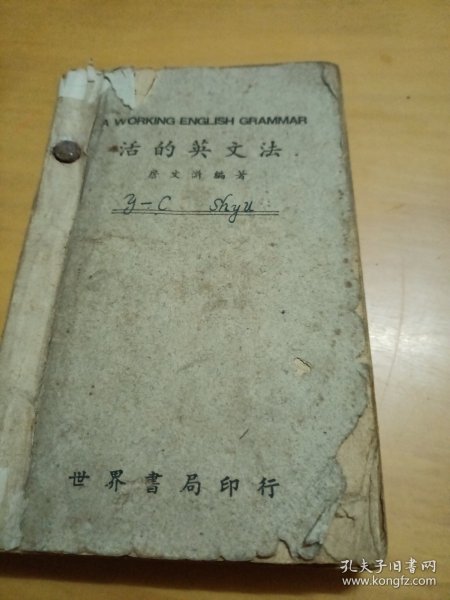 A WORKING ENGLISH GRAMMAR
活的英文法
詹文滸編著
Y-C Shyu
世界書局印行
孔夫子旧书网
www.kongfz.com